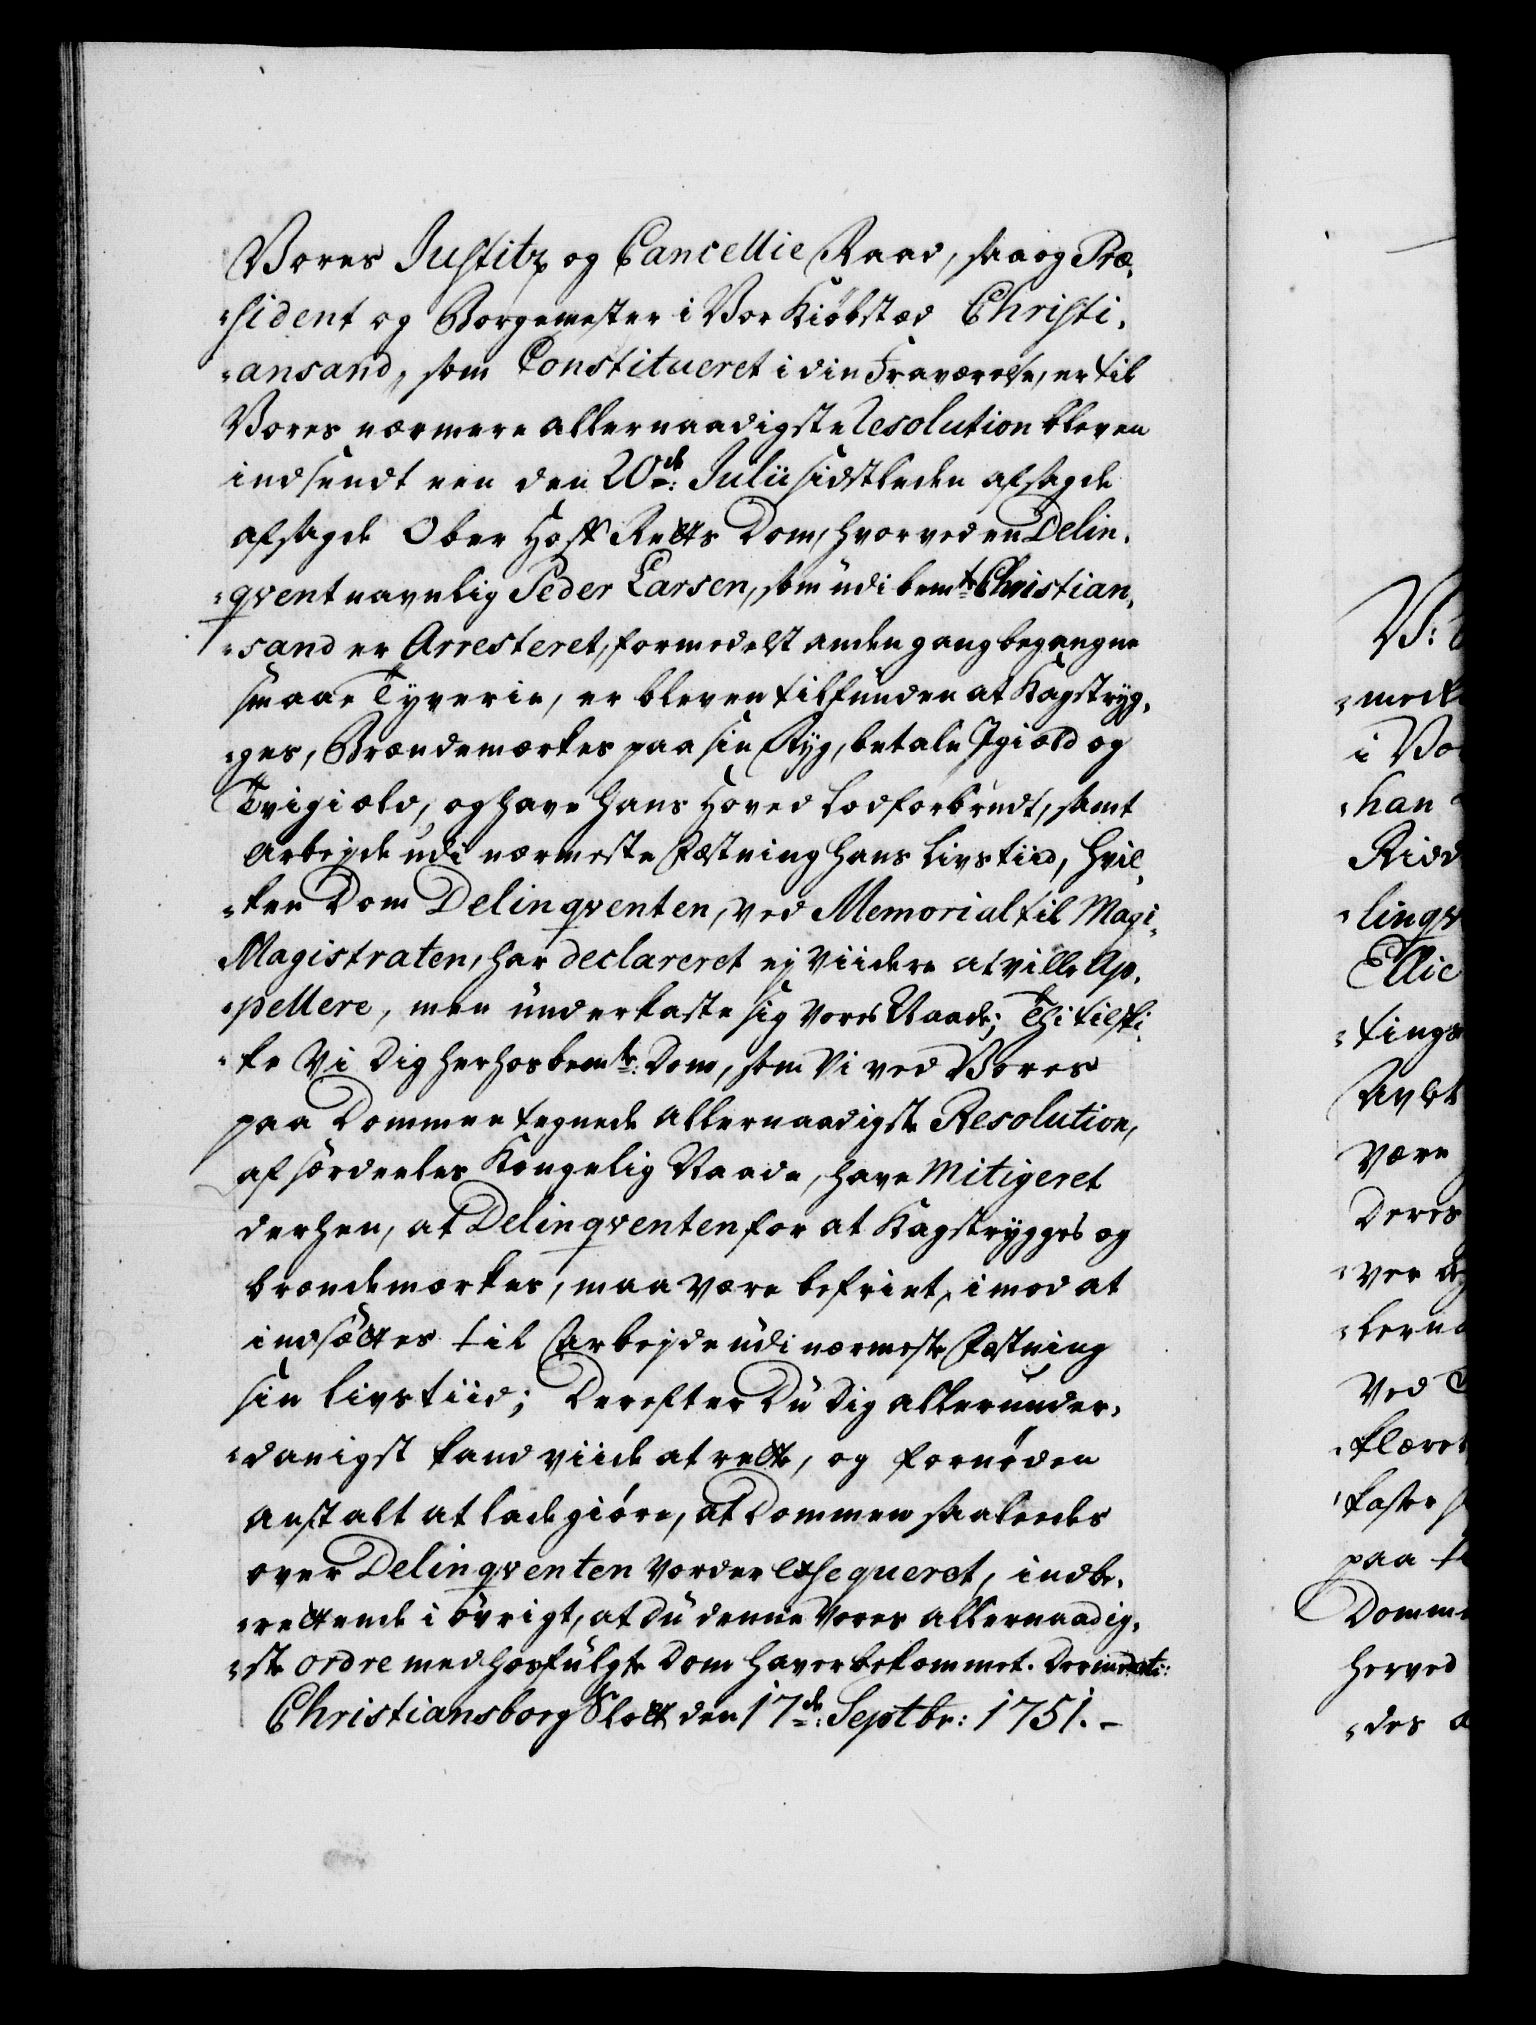 Vores Justitz og Cancellie Raad, saa og Præ-
-sident og Borgemester i Vor Kiøbstæd Christi-
-ansand, som Constitueret i din Fraværelse, er til
Vores nærmere allernaadigste Resolution bleven
indsendt een den 20de: Julii sidstleden afsagde
afsagde Ober Hoff Retts Dom, hvorved en Delin-
-qvent navnlig Peder Larsen, som udi bemte Christian-
-sand er Arresteret, formedelst anden gang begangne
smaae Tyverie, er bleven tilfunden at Kagstryg-
-ges, Brændemærkes paa sin Ryg, betale Igiæld og
Tvigiæld, og have hans Hoved Lod forbrudt, samt
Arbeyde udi nærmeste Fæstning hans Livstiid, hvil-
-ken Dom Delinqventen, ved Memorial til Magi-
Magistraten, har declareret ej viidere at ville Ap-
-pellere, men underkaste sig Vores Naade; Thi tilski-
-ke Vi Dig herhos bemte: Dom, som Vi ved Vores
paa Dommen tegnede allernaadigste Resolution,
af særdeeles Kongelig Naade, have Mitigeret
derhen, at Delinqventen for at Kagstrygges og
brændemærkes, maa være befriet, imod at
indsættes til Arbejde udi nærmeste Fæstning
sin Livstiid; Derefter Du Dig allerunder-
-danigst kand viide at rette, og fornøden
anstalt at lade giøre, at Dommen saaleedes
over Delinqventen vorder exseqveret, indbe-
-rettende i øvrigt, at Du denne Vores allernaadig-
-ste ordre med hosfulgte Dom haver bekommet.
Christiansborg Slott den 17de: Septbr: 1751.-
V:
-merk
i Vo
-han
Ridd
-linqv
Ellic
-tings
Avlet
være
Deres
-ver
-lerna
Ved
-klæret
-kaste
paa
Domme
herved
-des